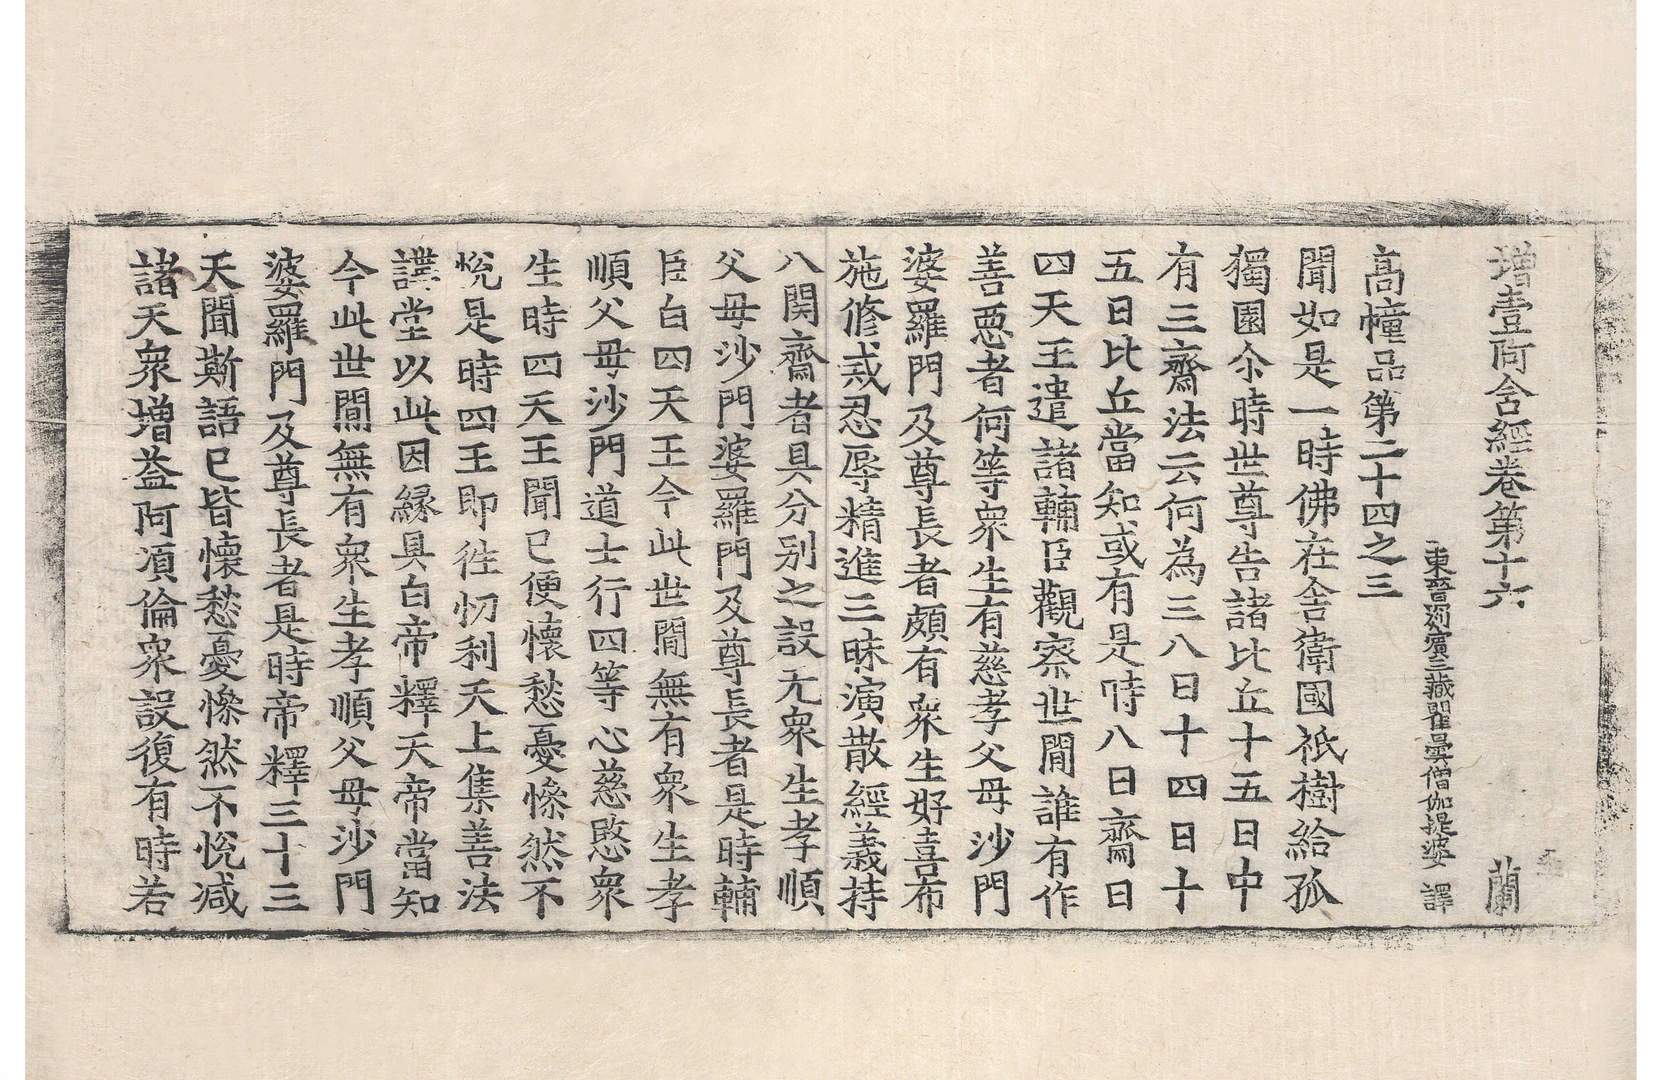 增壹阿含經卷第十六 蘭
東晉罽賓三藏瞿曇僧伽提婆 譯
高幢品第二十四之三
聞如是一時佛在舍衛國祇樹給孤
獨園尒時世尊告諸比丘十五日中
有三齋法云何為三八日十四日十
五日比丘當知或有是時八日齋日
四天王遣諸輔臣觀察世間誰有作
善惡者何等衆生有慈孝父母沙門
婆羅門及尊長者頗有衆生好喜布
施修戒忍辱精進三昧演散經義持
八関齋者具分別之設无衆生孝順
父母沙門婆羅門及尊長者是時輔
臣白四天王今此世間無有衆生孝
順父母沙門道士行四等心慈愍衆
生時四天王聞已便懷愁憂慘然不
悅是時四王即往忉利天上集善法
講堂以此因緣具白帝釋天帝當知
今此世間無有衆生孝順父母沙門
婆羅門及尊長者是時帝釋三十三
天聞斯語已皆懷愁憂慘然不悅减
諸天衆增益阿湏倫衆設復有時若